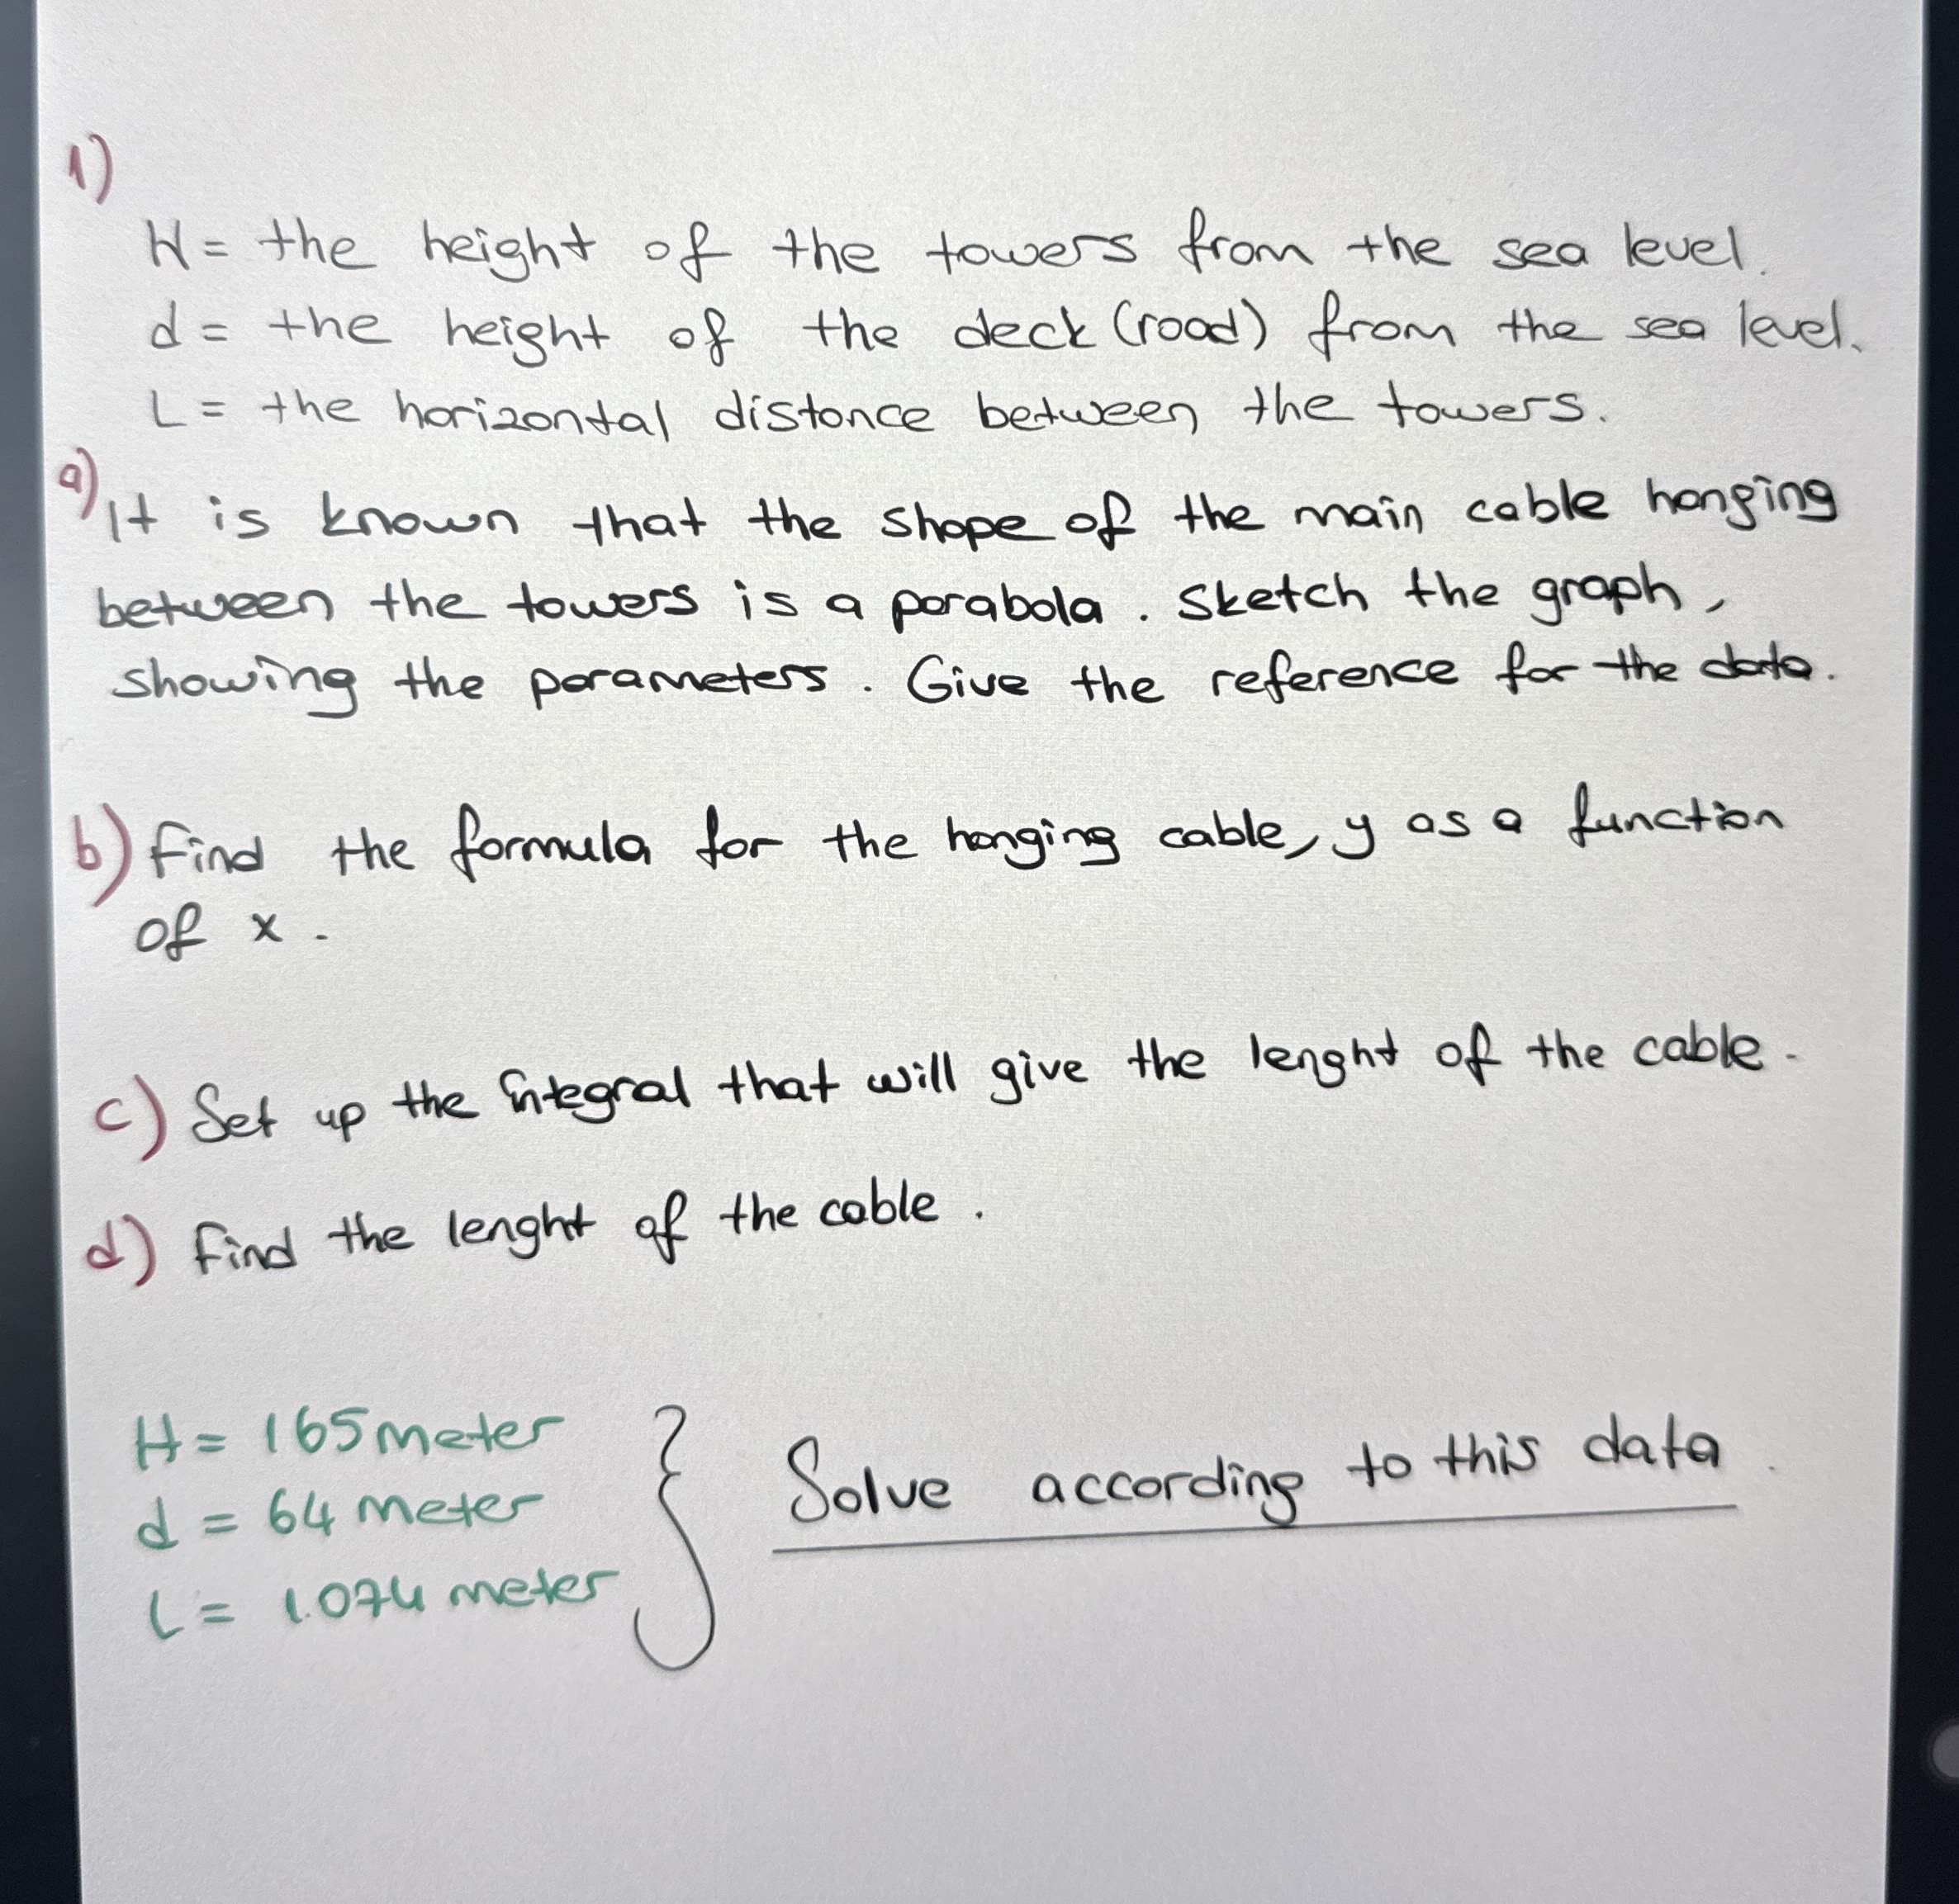 1)
H = the height of the towers from the sea level.
d = the height of the deck (road) from the sea level.
L = the horizontal distance between the towers.
a) It is known that the shape of the main cable hanging
between the towers is a parabola. Sketch the graph,
showing the parameters. Give the reference for the data.
b) Find the formula for the hanging cable, y as a function
of x.
c) Set up the integral that will give the lenght of the cable.
d) Find the lenght of the cable.
H = 165 meter
d = 64 meter
L = 1.074 meter
Solve according to this data.